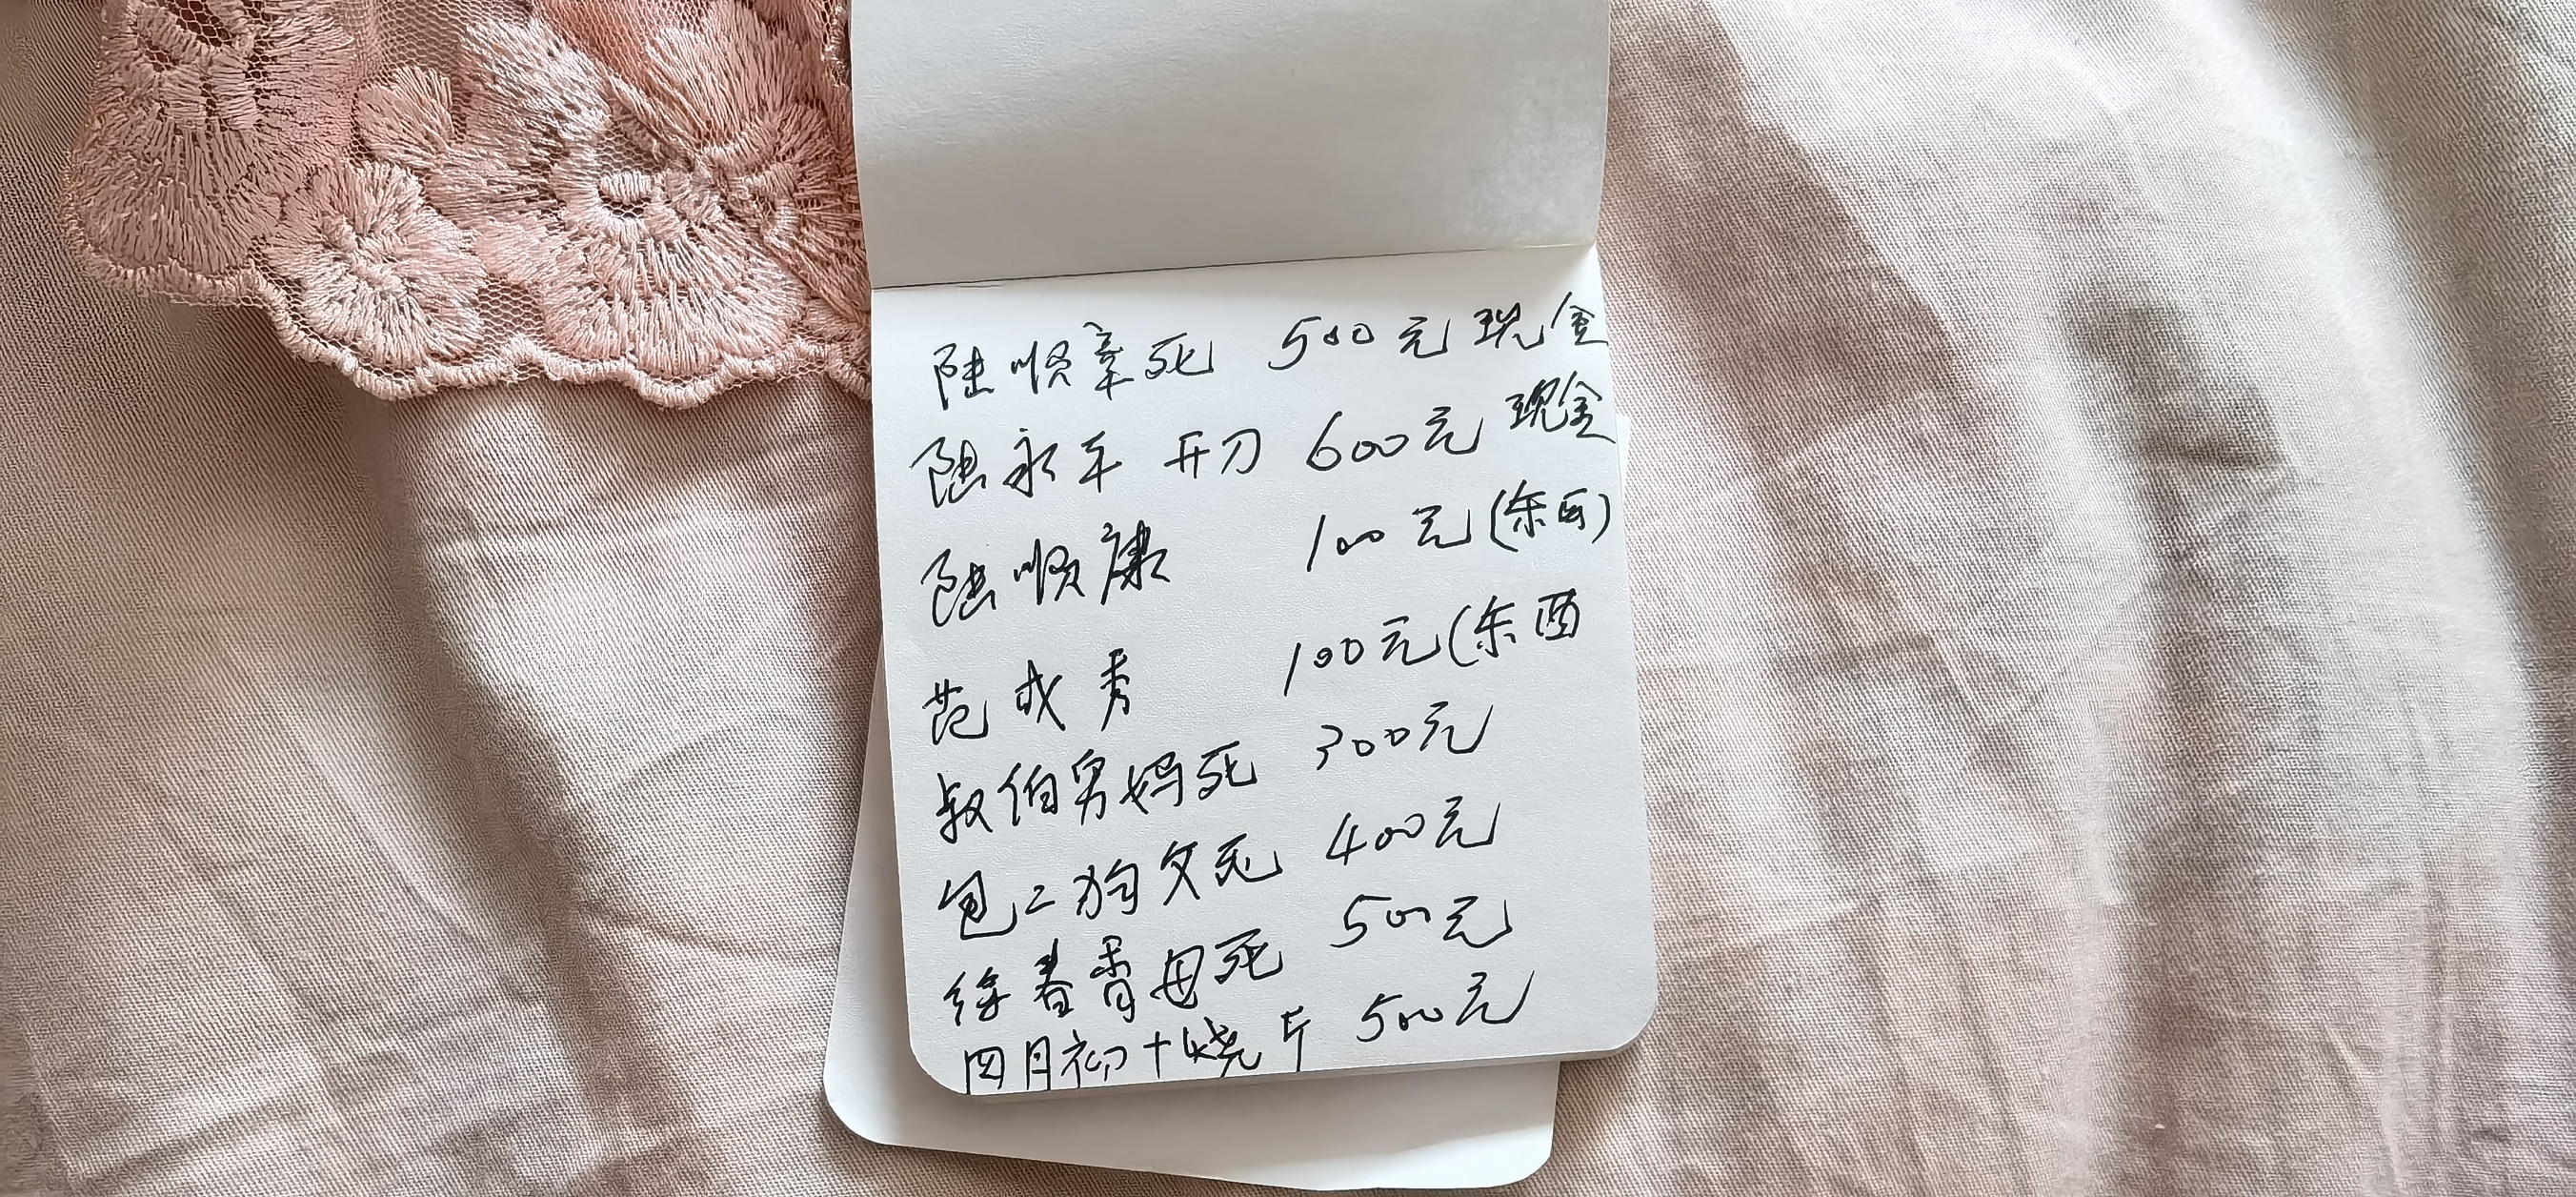 陆顺章死 500元现金
陆永平 开刀 600元现金
陆顺康 100元(东西)
范成秀 100元(东西
叔伯舅妈死 300元
包二狗父死 400元
徐春香母死 500元
四月初十烧 500元